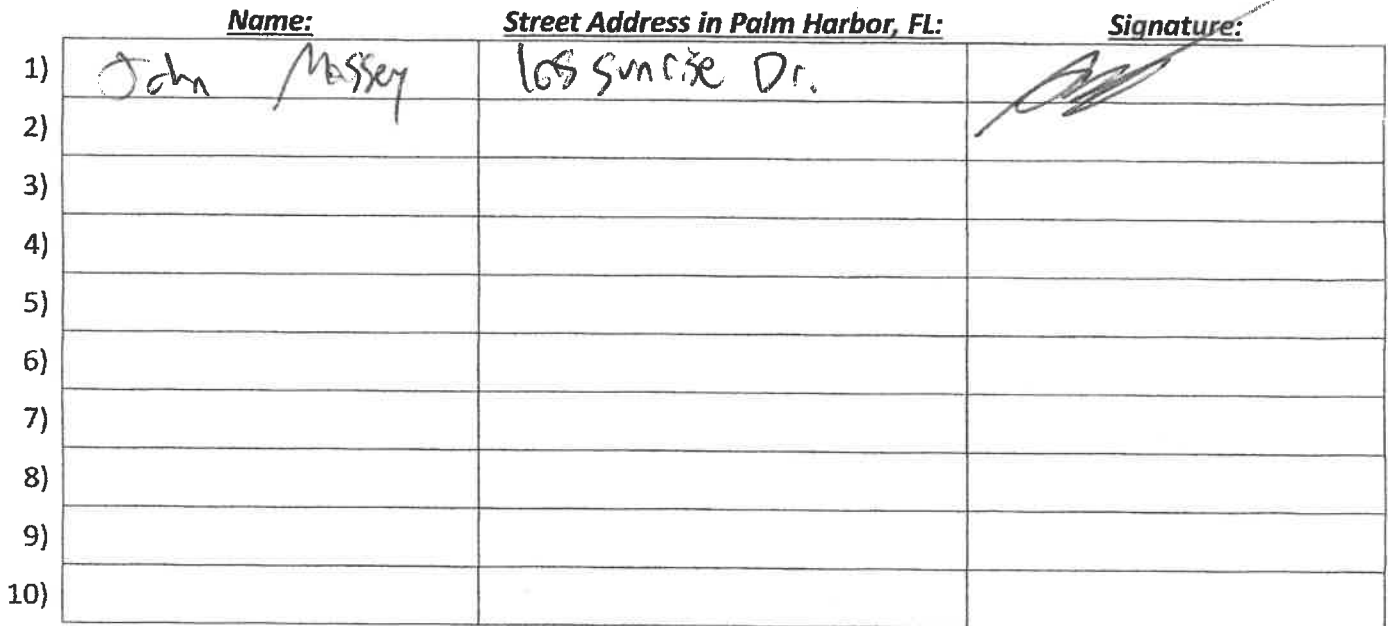 Name: Street Address in Palm Harbor, FL: Signature:
1) John Massey Sunrise Dr.
2)
3)
4)
5)
6)
7)
8)
9)
10)